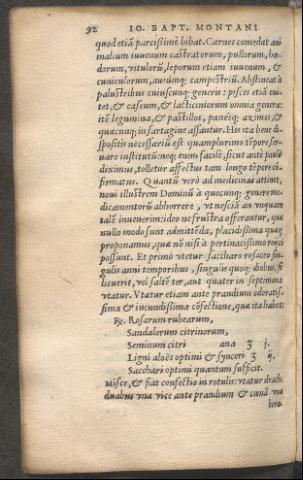 92 IO. BAPT. MONTANI
quod etiã parcissimè bibat. Carnes comedat ani
malium iuuenum castratorum, pullorum, hæ-
dorum, vitulorũ, leporum etiam iuuenum, &
cuniculorum, auiumq; campestriũ. Abstineat à
palustribus cuiuscunq; generis: pisces etiã eui-
tet, & caseum, & lacticiniorum omnia genera:
itē legumina, & pastillos, panésq; azimos, &
quæcunq; in sartagine assantur. His ita bene di-
spositis necessariũ est quamplurimo tēpore ser-
uare institutũ: neq; enim facilè, sicut antè paulò
diximus, tolletur affectus tam longo tēpore cō-
firmatus. Quantũ verò ad medicinas attinet,
noui illustrem Dominũ à quocunq; genere me-
dicamentorũ abhorrere, vt nesciã an vnquam
talē inuenerim: ideo ne frustra offerantur, quæ
nullo modo sunt admittēda, placidissima quæq;
proponamus, quæ nō nisi à pertinacissimo renci
possunt. Et primò vtetur saccharo rosaceo sin-
gulis anni temporibus, singulis quoq; diebus, si
licuerit, vel saltē ter, aut quater in septimana
vtatur. Vtatur etiam ante prandium odoratis-
sima & iucundissima cōfectione, quæ ita habet:
℞. Rosarum rubearum,
Sandalorum citrinorum,
Seminum citri ana ʒ j.
Ligni aloës optimi & synceri ʒ ij.
Sacchari optimi quantum sufficit.
Misce, & fiat confectio in rotulis: vtatur drach.
duabus vna vice ante prandium & cœnã vna
hora.